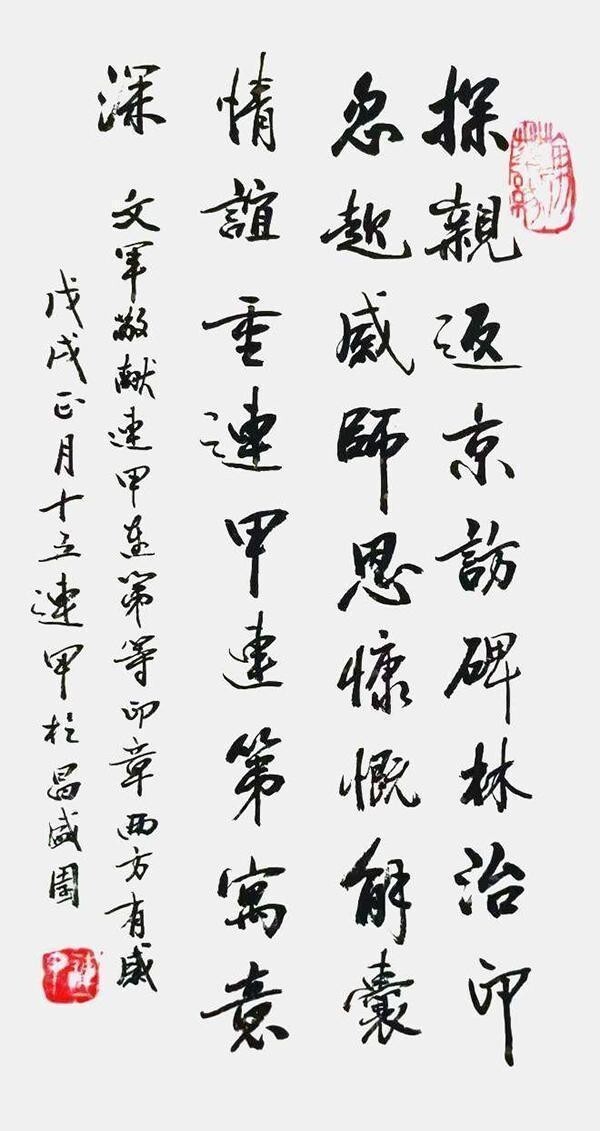 探親返京訪碑林治印
忽起感師恩慷慨解囊
情誼重連甲連第寓意
深
文军敬献連甲連第等印章两方有感
戊戌正月十五連甲於昌盛園